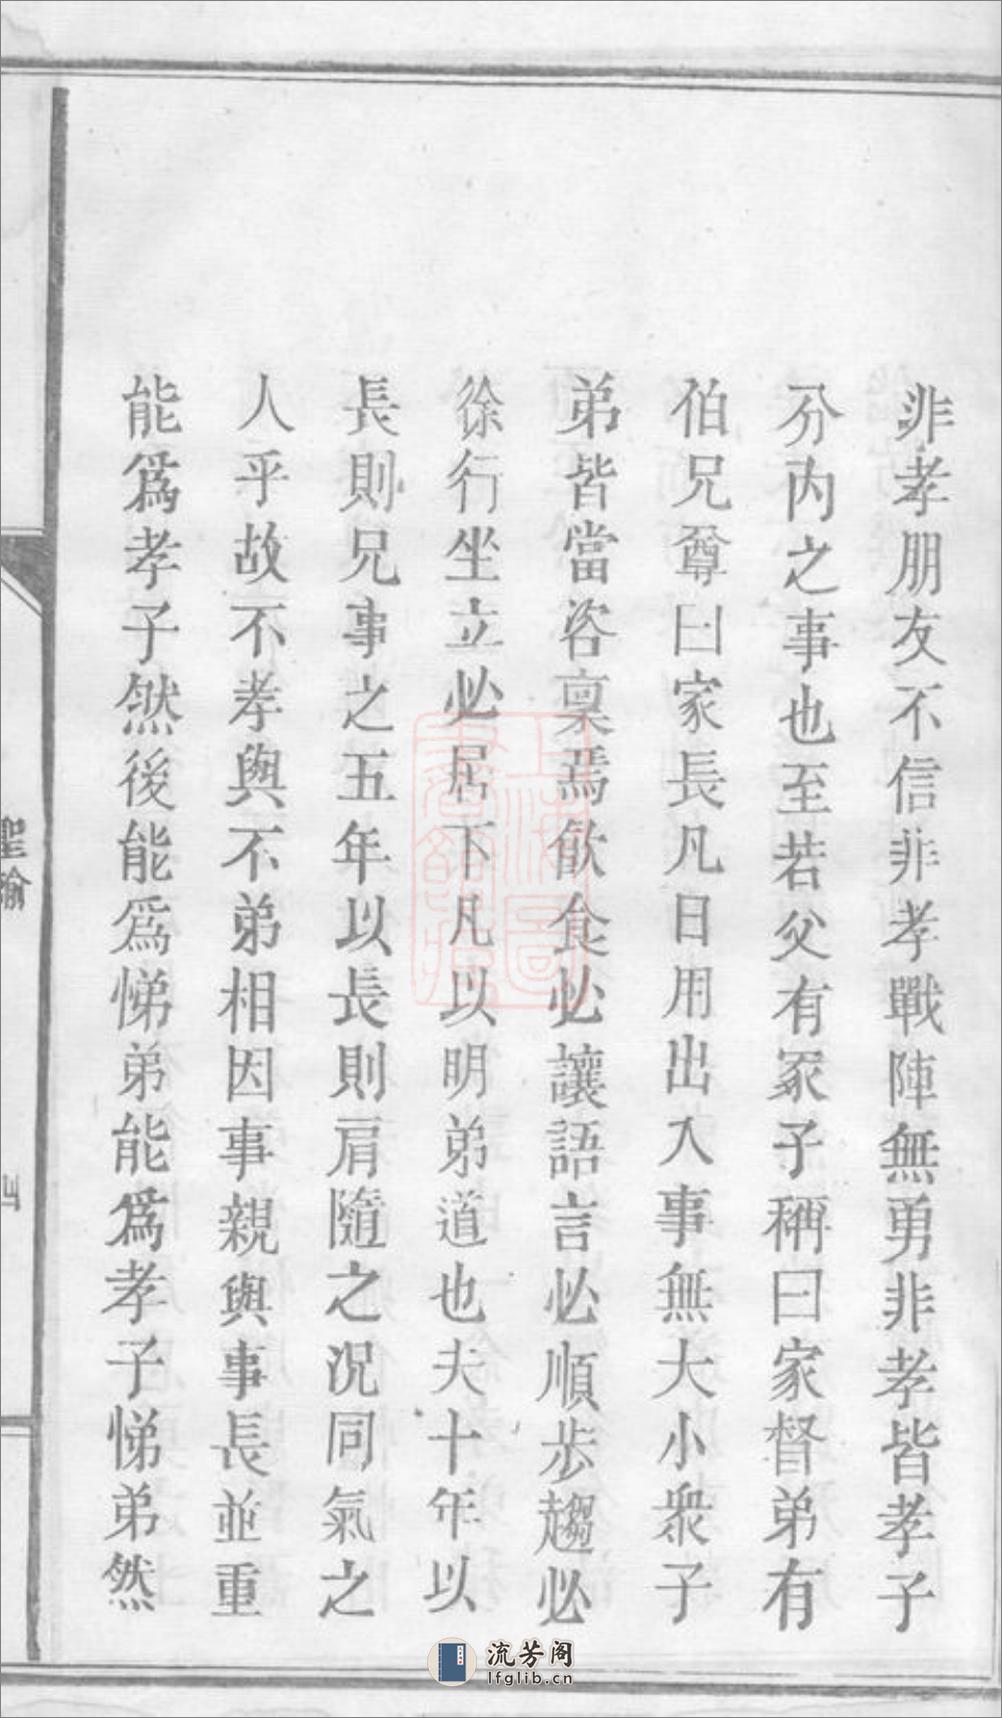 非孝朋友不信非孝戰陣無勇非孝皆孝子
分內之事也至若父有冢子稱曰家督弟有
伯兄尊曰家長凡日用出入事無大小衆子
弟皆當咨稟焉飲食必讓語言必順步趨必
徐行坐立必居下凡以明弟道也夫十年以
長則兄事之五年以長則肩隨之況同氣之
人乎故不孝與不弟相因事親與事長並重
能爲孝子然後能爲悌弟能爲孝子悌弟然
聖諭
四
上海圖
書館藏
流芳阁
lfglib.cn